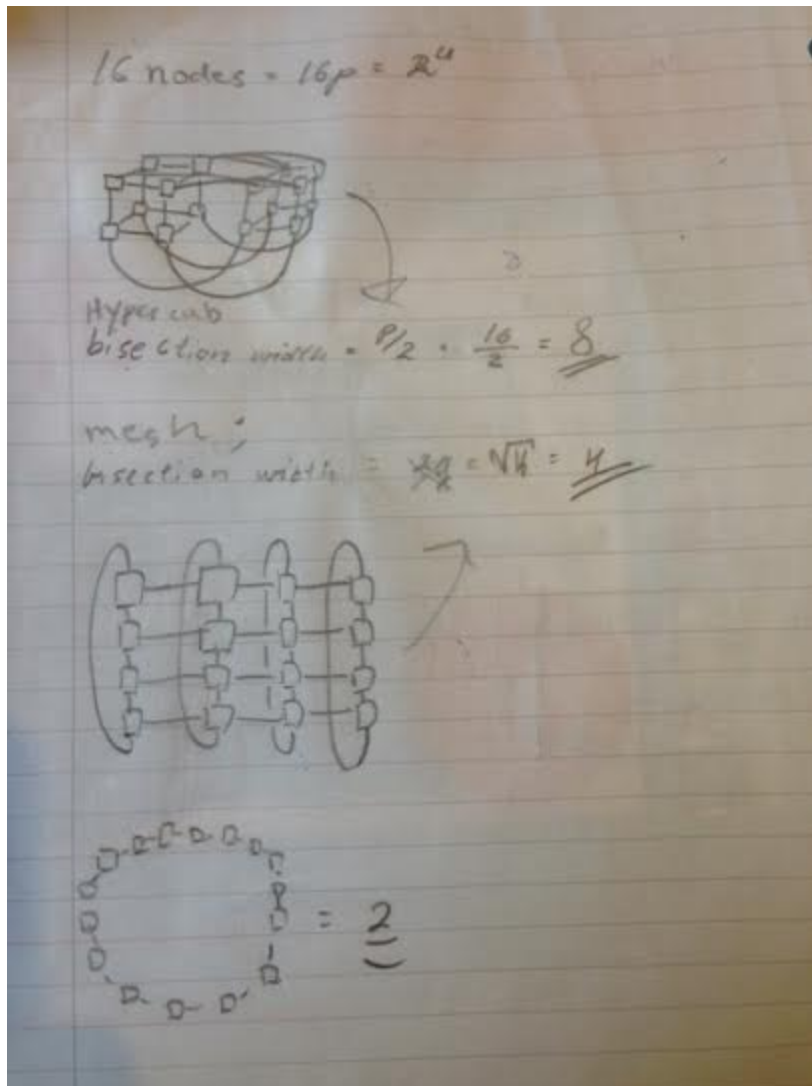 16 nodes = 16p = 2⁴
Hypercub
bisection width = P/2 = 16/2 = 8
mesh;
bisection width = = √4 = 4
= 2